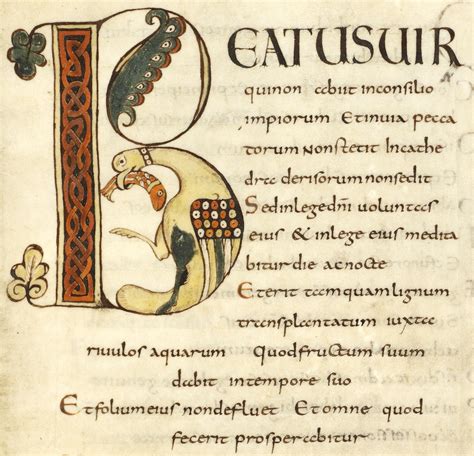 BEATUSUIR
quinon abiit inconsilio
impiorum Etinuia pecca
torum Nonstetit Incathe
dra derisorum nonsedit
Sedinlegedn̄i voluntas
eius & inlege eius medita
biturdie acnocte
Eterit tamquamlignum
transplantatum iuxta
riuulos aquarum Quodfructum suum
dabit intempore suo
Etfoliumeius nondefluet Etomne quod
fecerit prosperabitur